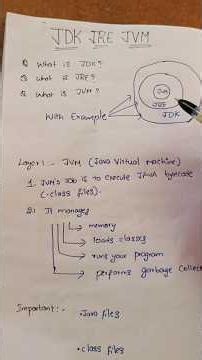 JDK JRE JVM
Q What is JDK?
Q What is JRE?
Q What is JVM?
With Example
JVM
JRE
JDK
Layer 1 - JVM (Java Virtual Machine)
1. JVM's Job is to Execute JAVA bytecode
(.class files).
2. It manages
memory
loads classes
runs your program
performs garbage collec
Important:-
.Java files
.class files